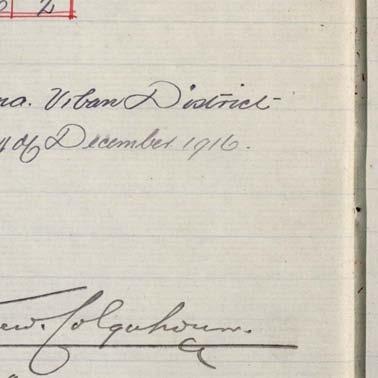 2
na. Urban District
y of December 1916.
ew. Colquhoun.